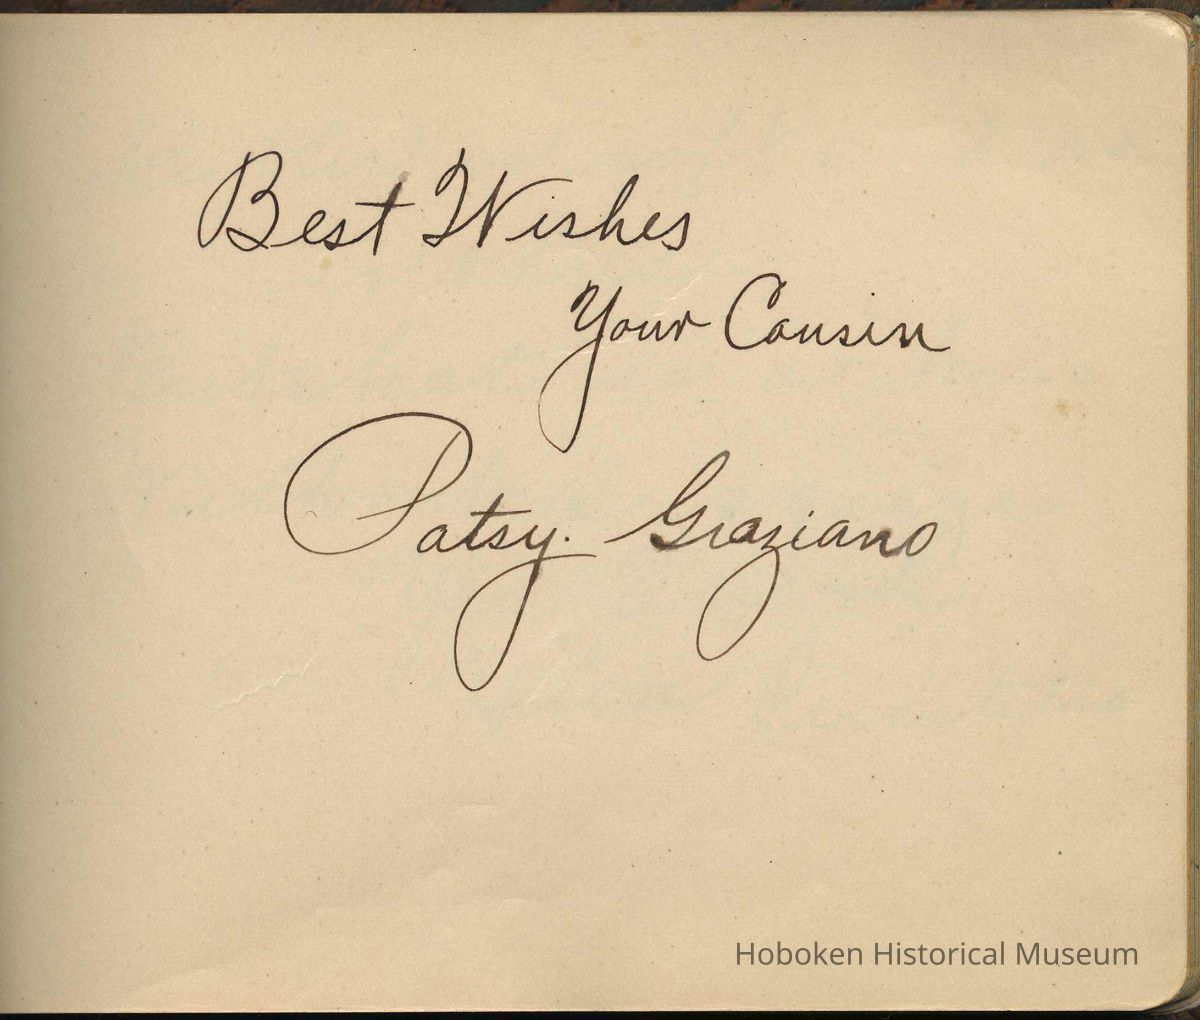 Best Wishes
Your Cousin
Patsy. Graziano
Hoboken Historical Museum